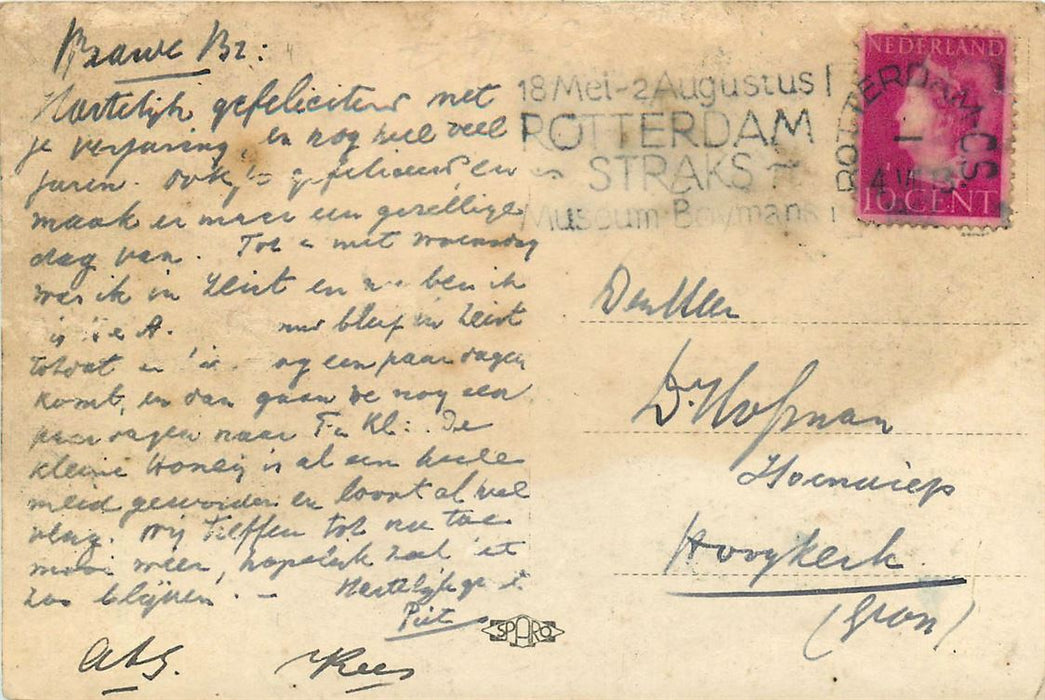 Brawe Br:
Hartelijk gefeliciteerd met
je verjaring, en nog heel veel
jaren. Ook gefeliciteerd en
maak er maar een gezellige
dag van. Tot met woensdag
was ik in Zeist en nu ben ik
in A. blijf in Zeist
totdat een paar dagen
komt, en dan gaan we nog een
paar dagen naar
kleine is al een heele
meid geworden en loopt al heel
vlug. Wij treffen tot nu toe
mooi weer, hopelijk zal 't
zoo blijven! - Hartelijk
Piet
Kees
18 Mei - 2 Augustus
ROTTERDAM
~ STRAKS ~
Museum Boymans
NEDERLAND
ROTTERDAM C.S.
10 CENT
Den Heer
D. Hofman
Hoendiep
Hoogkerk
(Gron)
SPARO